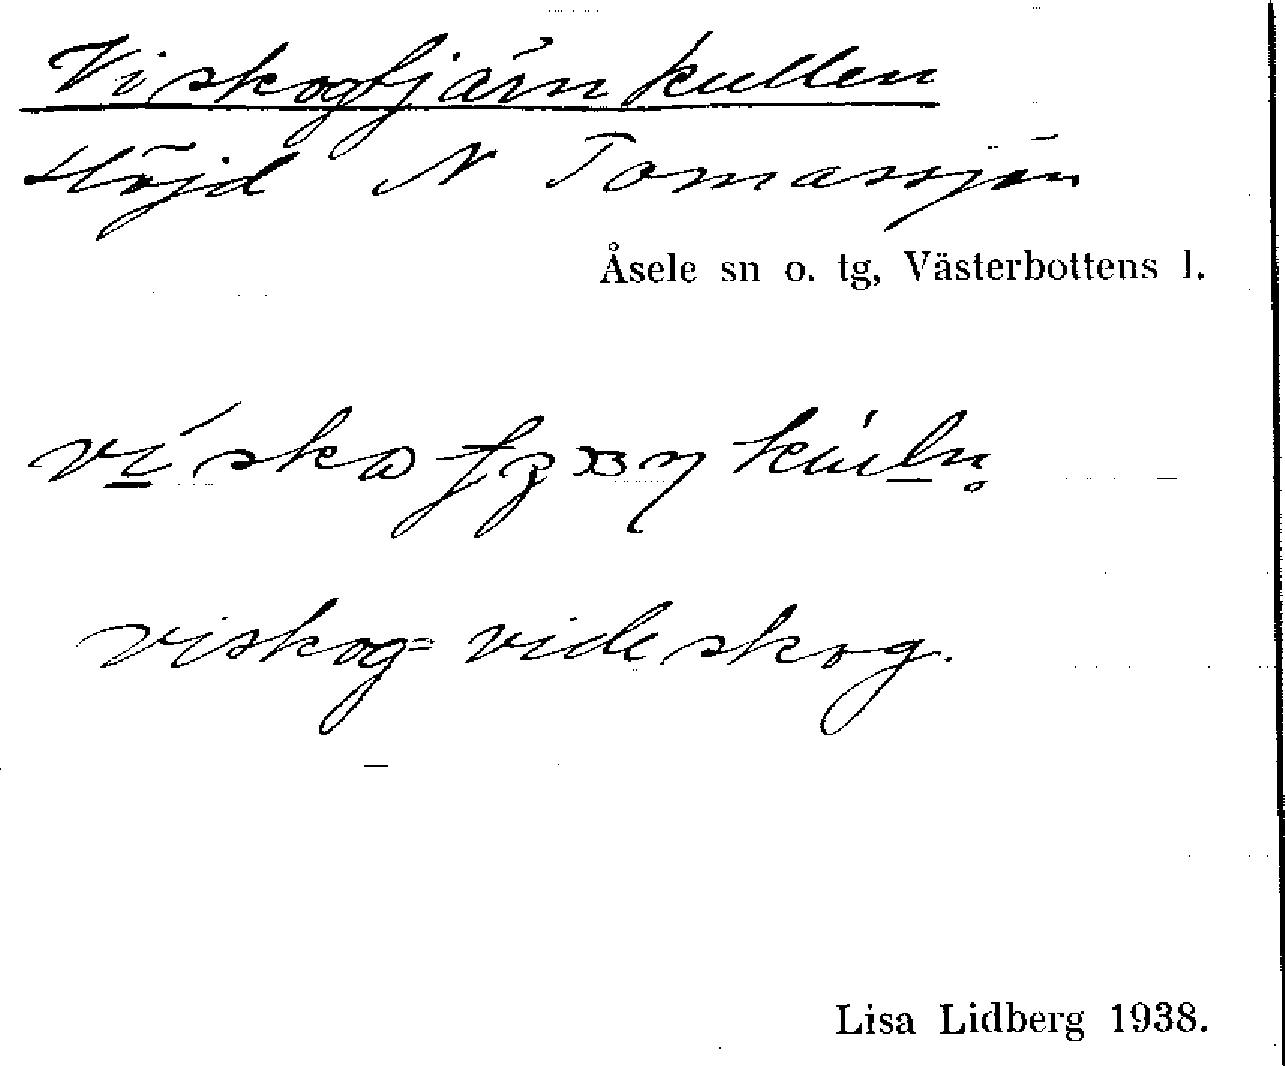 Viskogtjärnkullen
Höjd N Tomassjön
Åsele sn o. tg, Västerbottens l.
viskog = videskog.
Lisa Lidberg 1938.